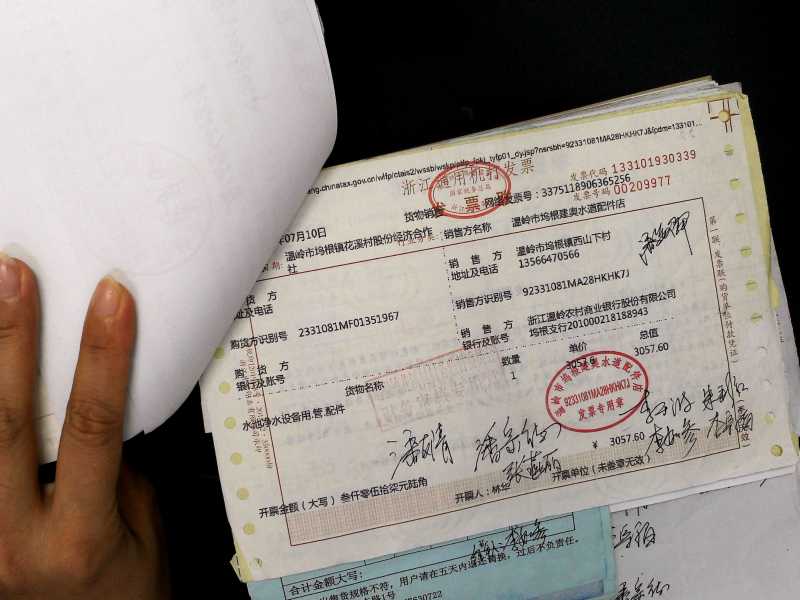 ng.chinatax.gov.cn/wlfp/ctais2/wssb/wskp/ptfp_fpkj_tyfp01_dy.jsp?nsrsbh=92331081MA28HKHK7J&fpdm=133101...
浙江通用机打发票
发票代码 133101930339
发票号码 00209977
发票联
货物销售
网络发票号: 3375118906365256
07月10日
行业分类
销售方名称 温岭市坞根建奥水道配件店
温岭市坞根镇花溪村股份经济合作社
销售方
地址及电话
温岭市坞根镇西山下村
13566470566
货方
址及电话
销售方识别号 92331081MA28HKHK7J
购货方识别号 2331081MF01351967
销售方
银行及账号
浙江温岭农村商业银行股份有限公司
坞根支行201000218188943
购货方
银行及账号
货物名称
数量
单价
总值
水池净水设备用.管.配件
1
3057.6
3057.60
温岭市坞根建奥水道配件店
92331081MA28HKHK7J
发票专用章
¥ 3057.60
开票金额(大写) 叁仟零伍拾柒元陆角
开票人: 林华
开票单位(未盖章无效)
第一联 发票联
合计金额大写:
货规格不符,用户请在五天内退还替换,过后不负责任。
路1号
630722